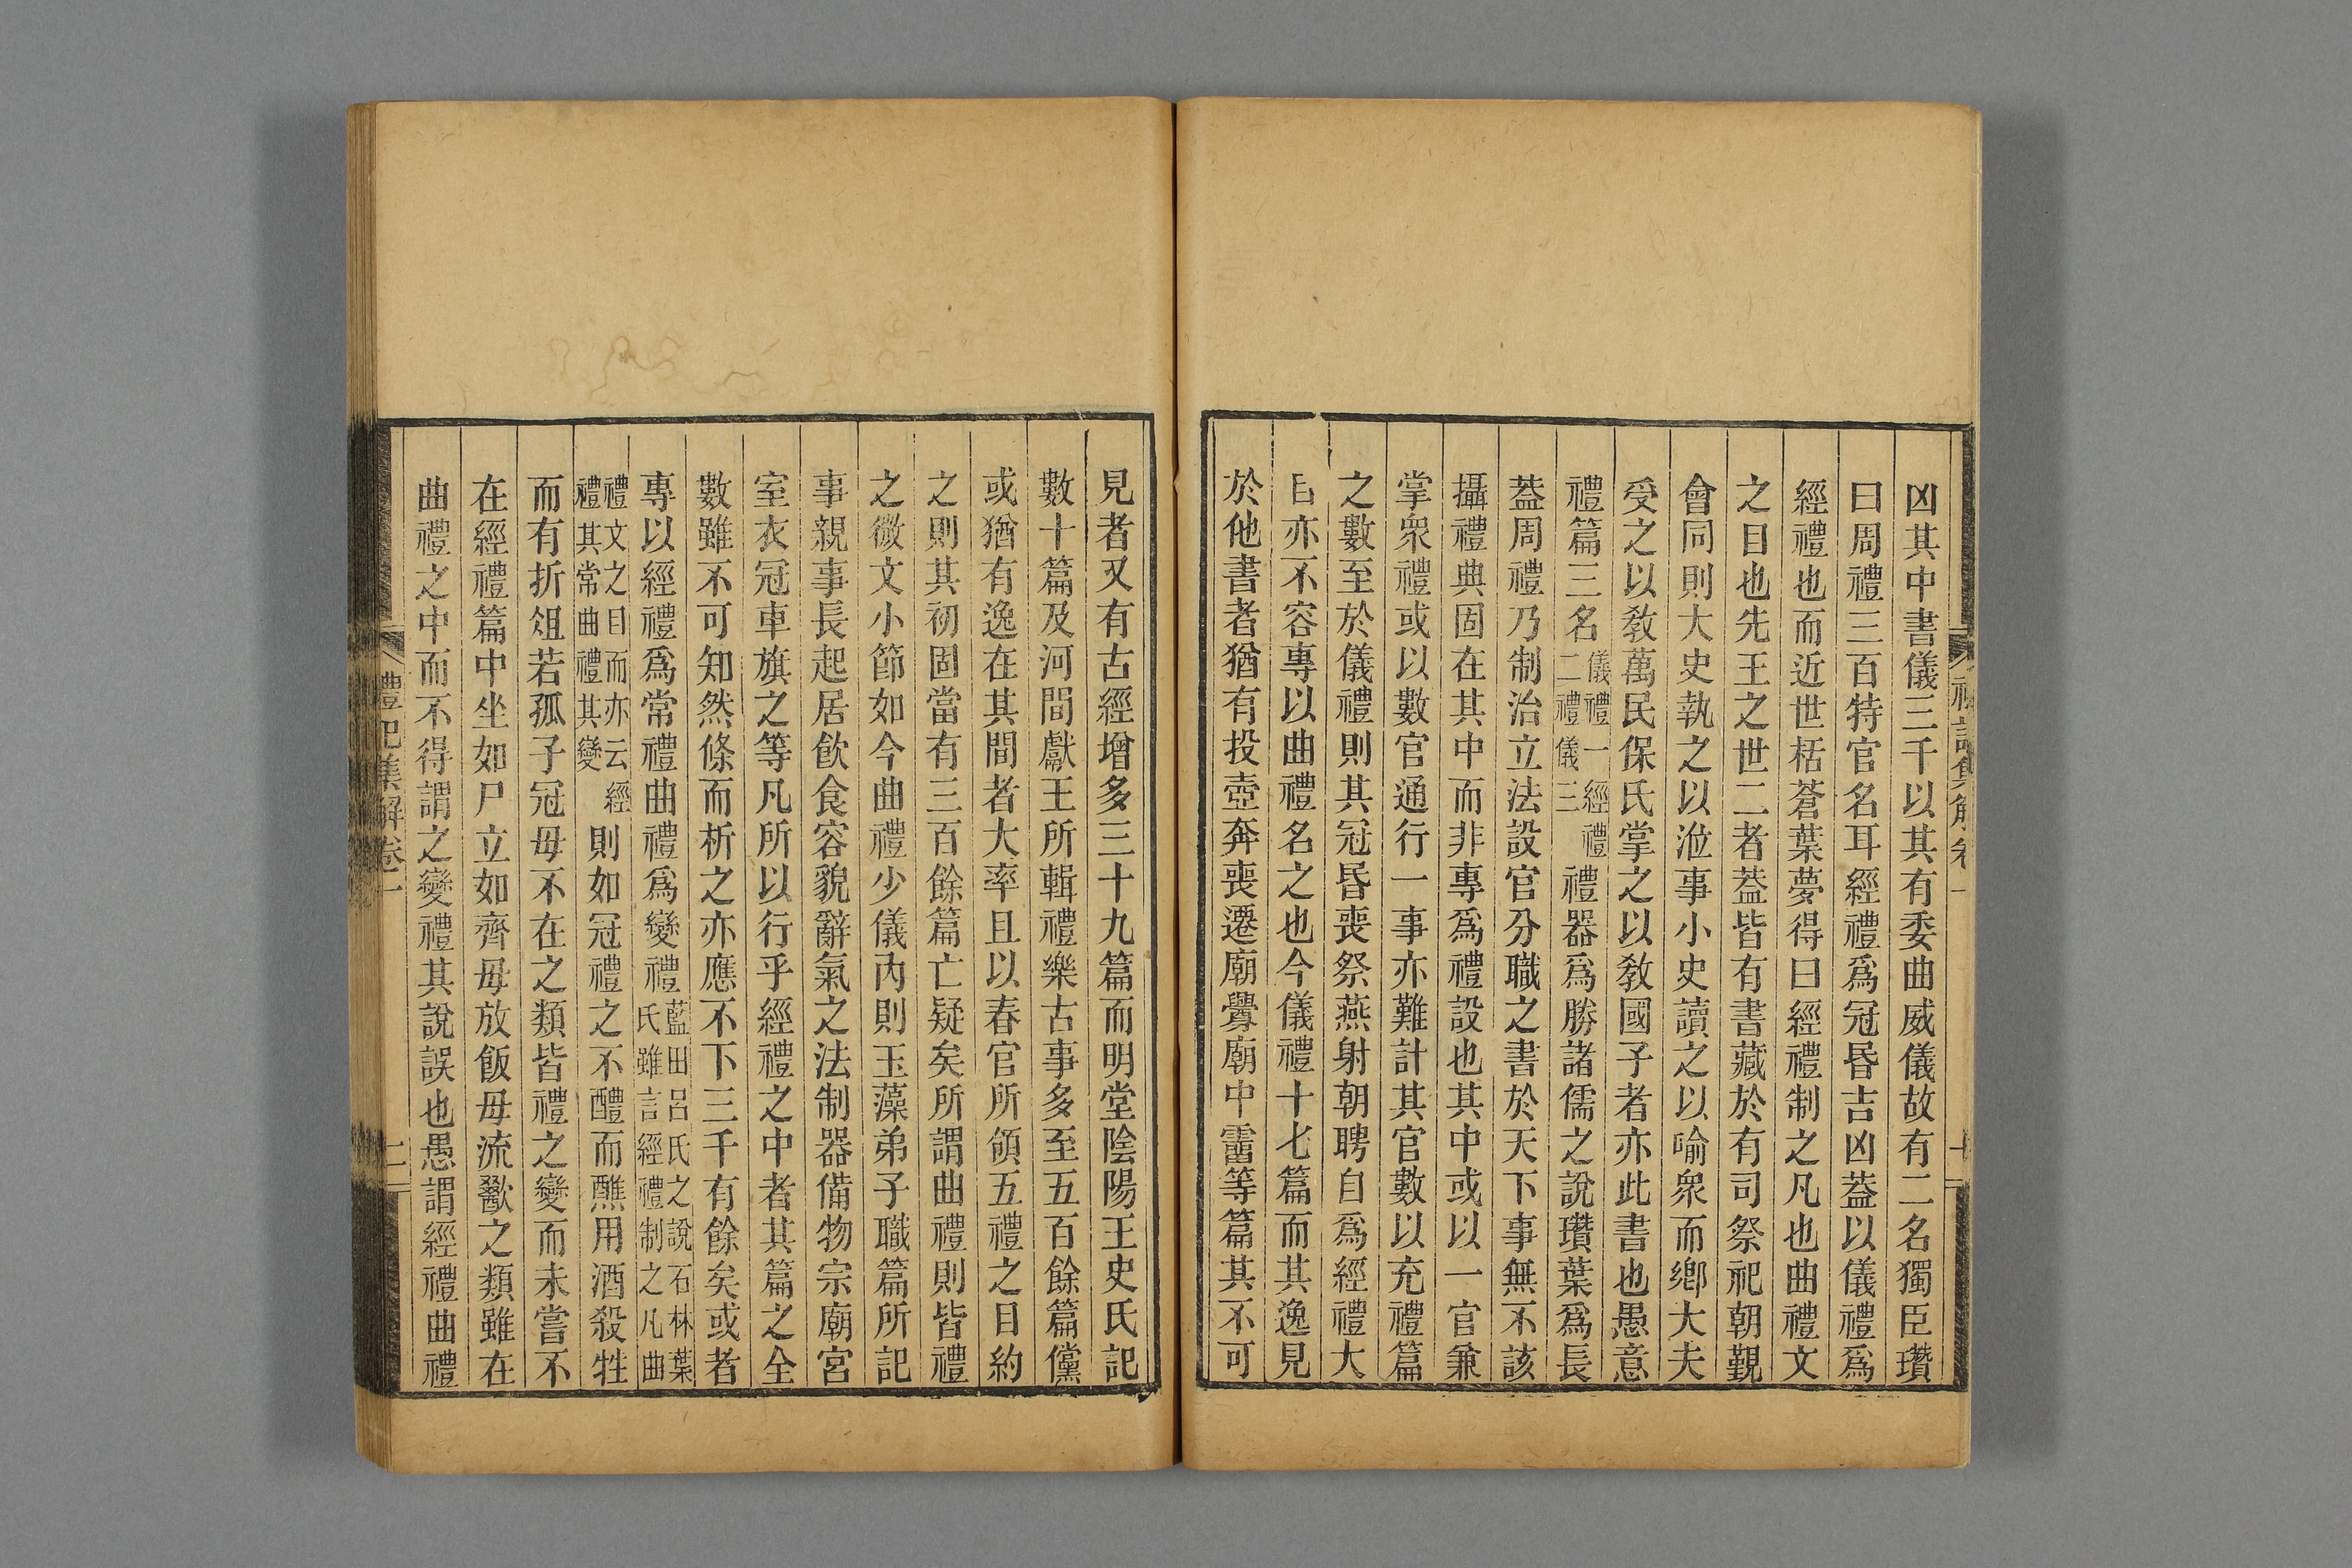 凶其中書儀三千以其有委曲威儀故有二名獨臣瓚
曰周禮三百特官名耳經禮爲冠昏吉凶葢以儀禮爲
經禮也而近世栝蒼葉夢得曰經禮制之凡也曲禮文
之目也先王之世二者葢皆有書藏於有司祭祀朝覲
會同則大史執之以涖事小史讀之以喻衆而鄕大夫
受之以敎萬民保氏掌之以敎國子者亦此書也愚意
禮篇三名儀禮一經禮二禮儀三禮器爲勝諸儒之說瓚葉爲長
葢周禮乃制治立法設官分職之書於天下事無不該
攝禮典固在其中而非專爲禮設也其中或以一官兼
掌衆禮或以數官通行一事亦難計其官數以充禮篇
之數至於儀禮則其冠昏喪祭燕射朝聘自爲經禮大
目亦不容專以曲禮名之也今儀禮十七篇而其逸見
於他書者猶有投壺奔喪遷廟釁廟中霤等篇其不可
見者又有古經增多三十九篇而明堂陰陽王史氏記
數十篇及河間獻王所輯禮樂古事多至五百餘篇儻
或猶有逸在其間者大率且以春官所領五禮之目約
之則其初固當有三百餘篇亡疑矣所謂曲禮則皆禮
之微文小節如今曲禮少儀內則玉藻弟子職篇所記
事親事長起居飮食容貌辭氣之法制器備物宗廟宮
室衣冠車旗之等凡所以行乎經禮之中者其篇之全
數雖不可知然條而析之亦應不下三千有餘矣或者
專以經禮爲常禮曲禮爲變禮藍田呂氏之說石林葉氏雖言經禮制之凡曲
禮文之目而亦云經禮其常曲禮其變則如冠禮之不醴而醮用酒殺牲
而有折俎若孤子冠毋不在之類皆禮之變而未嘗不
在經禮篇中坐如尸立如齊毋放飯毋流歠之類雖在
曲禮之中而不得謂之變禮其說誤也愚謂經禮曲禮
禮記集解卷一
二